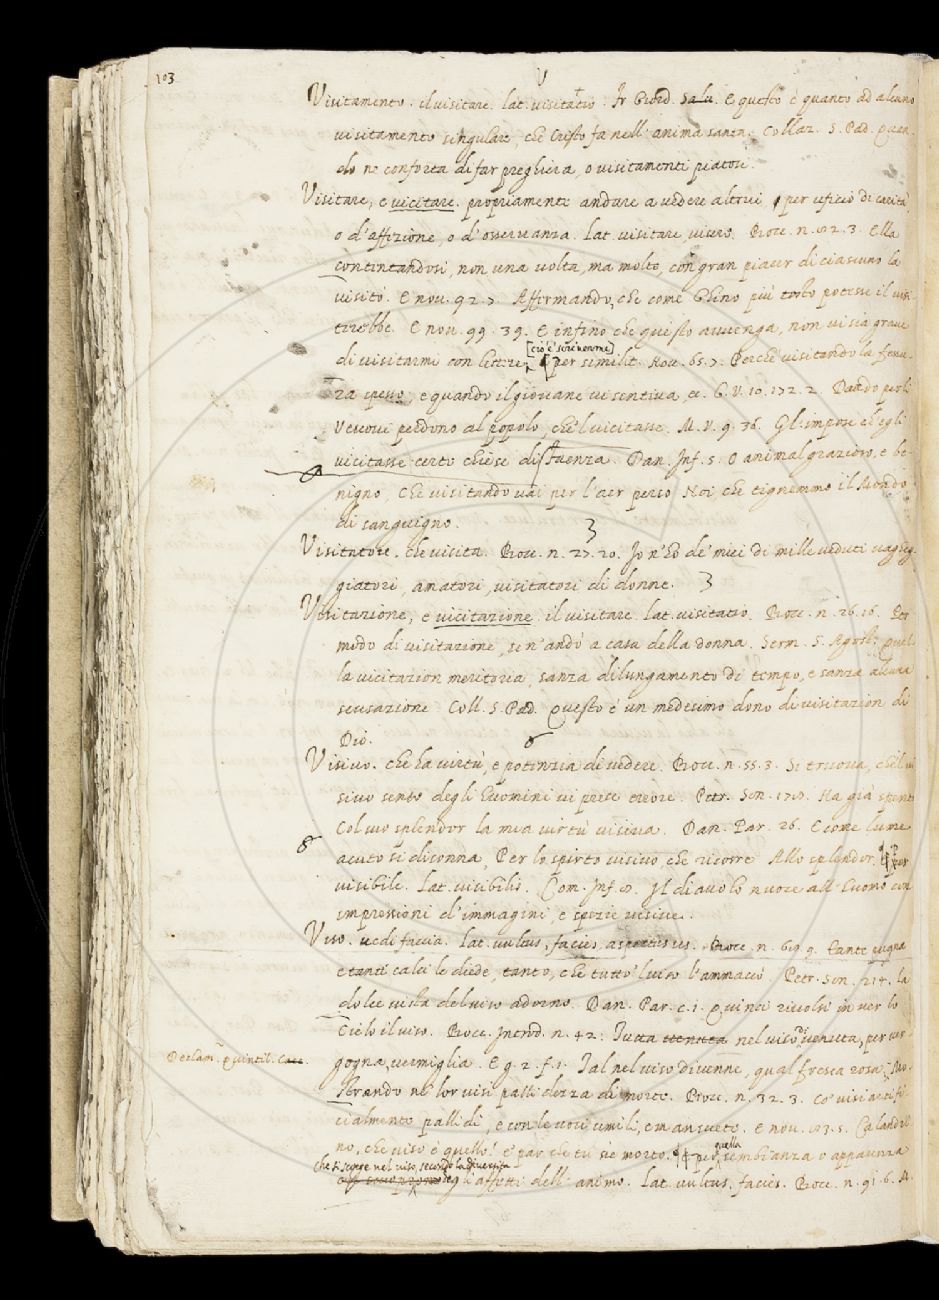 103
V
Visitamento. il visitare. lat. visitatio. Fr. Giord. Salu. E questo è quanto ad alcuno
visitamento singulare, che Cristo fa nell'anima santa. Collaz. S. Pad. Quan-
do ne conforta di far preghiera, o visitamenti piatosi.
Visitare, e vicitare. propriamente andare a vedere altrui per uficio di carità,
o d'affezione, o d'osservanza. Lat. visitare, visere. Bocc. n. 82. 3. Ella
contentandosi, non una volta, ma molte, con gran piacer di ciascuno la
visitò. E nou. 92. 7. Affermando, che come Ghino più tosto potesse il visi-
terebbe. E nou. 99. 39. E infino che questo avvenga, non vi sia grave
[cio è scrivermi]
di visitarmi con lettere, ¶ per similit. Nou. 65. 7. Perchè visitando la fenu-
ra spesso, e quando il giovane vi sentiva, ec. G. V. 10. 172. 2 Dando per li
Vescovi perdono al popolo, che 'l vicitasse. M. V. 9. 36. Gl'impose ch'egli
vicitasse certo chiese di Faenza. Dan. Inf. 5. O animal grazioso, e be-
nigno, Che visitando vai per l'aer perso Noi, che tignemmo il Mondo
di sanguigno. 3
Visitatore. che visita. Bocc. n. 27. 20. Io n'hò de' miei dì mille veduti vagheg-
giatori, amatori, visitatori di donne. 3
Visitazione, e vicitazione. il vicitare. lat. visitatio. Bocc. n. 26. 16. Per
modo di visitazione, se n'andò a casa della donna. Serm. S. Agost. Quel-
la vicitazion meritoria, sanza dilungamento di tempo, e sanza alcuna
scusazione. Coll. S. Pad. Questo è un medesimo dono di visitazion di
Dio.
Visivo. che ha virtù, e potenzia di vedere. Bocc. n. 55. 3. Si truova, che il vi-
sivo senso degli huomini vi prese errore. Petr. Son. Ha già spento
Col suo splendor la mia virtù visiva. Dan. Par. 26. E come lume
acuto si disonna, Per lo spirto visivo, che ricorre Allo splendor, ¶ per
visibile. Lat. visibilis. Com. Inf. 8. Il diavolo nuoce all'huomo con
impressioni d'immagini, e spezie visive.
Viso. vedi faccia. Lat. vultus, facies, aspectus us. Bocc. n. 68. 9. Tante pugna
e tanti calci le diede, tanto, che tutto 'l viso l'ammaccò. Petr. Son. 214. la
dolce vista del viso adorno. Dan. Par. c. 1. Quinci rivolse inver lo
Cielo il viso. Bocc. Introd. n. 42. Tutta nel viso divenuta per ver-
Declam. Quintil.
gogna vermiglia. E g. 2. f. 1. Tal nel viso divenne, qual fresca rosa. Mo-
strando ne' lor visi pallidezza di morte. Bocc. n. 32. 3. Co' visi artifi-
cialmente pallidi, e con le voci umili, e mansuete. E nou. 83. 5. Calandri-
no, che viso è quello! e' par che tu sie morto. ¶ per quella sembianza o apparenza
che si scorge nel viso, secondo la diversità
degli affetti dell'animo. Lat. vultus, facies. Bocc. n. 91. 6. M.